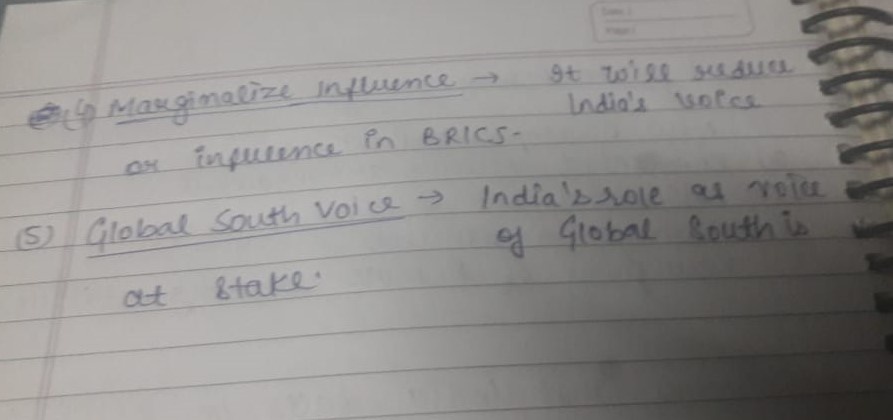 (4) Marginalize Influence → It will reduce
India's voice
or influence in BRICS-
(5) Global South Voice → India's role as voice
of Global South is
at stake.